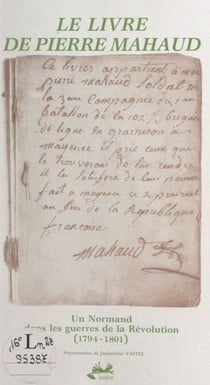 LE LIVRE
DE PIERRE MAHAUD
Ce livres appartient a moi
pierre mahaud soldat en
la 3me Compagnie du 1er
batallon de la 102 brigade
de ligne En garnison a
mayence il prie ceux que
le trouverons de lui rendre
il les de leur peinne
fait a mayence ce 2 praireal
au six de la Republique
francoise
Mahaud
Un Normand
dans les guerres de la Révolution
(1794-1801)
Présentation de Jacqueline VASTEL
16° Ln27
95387